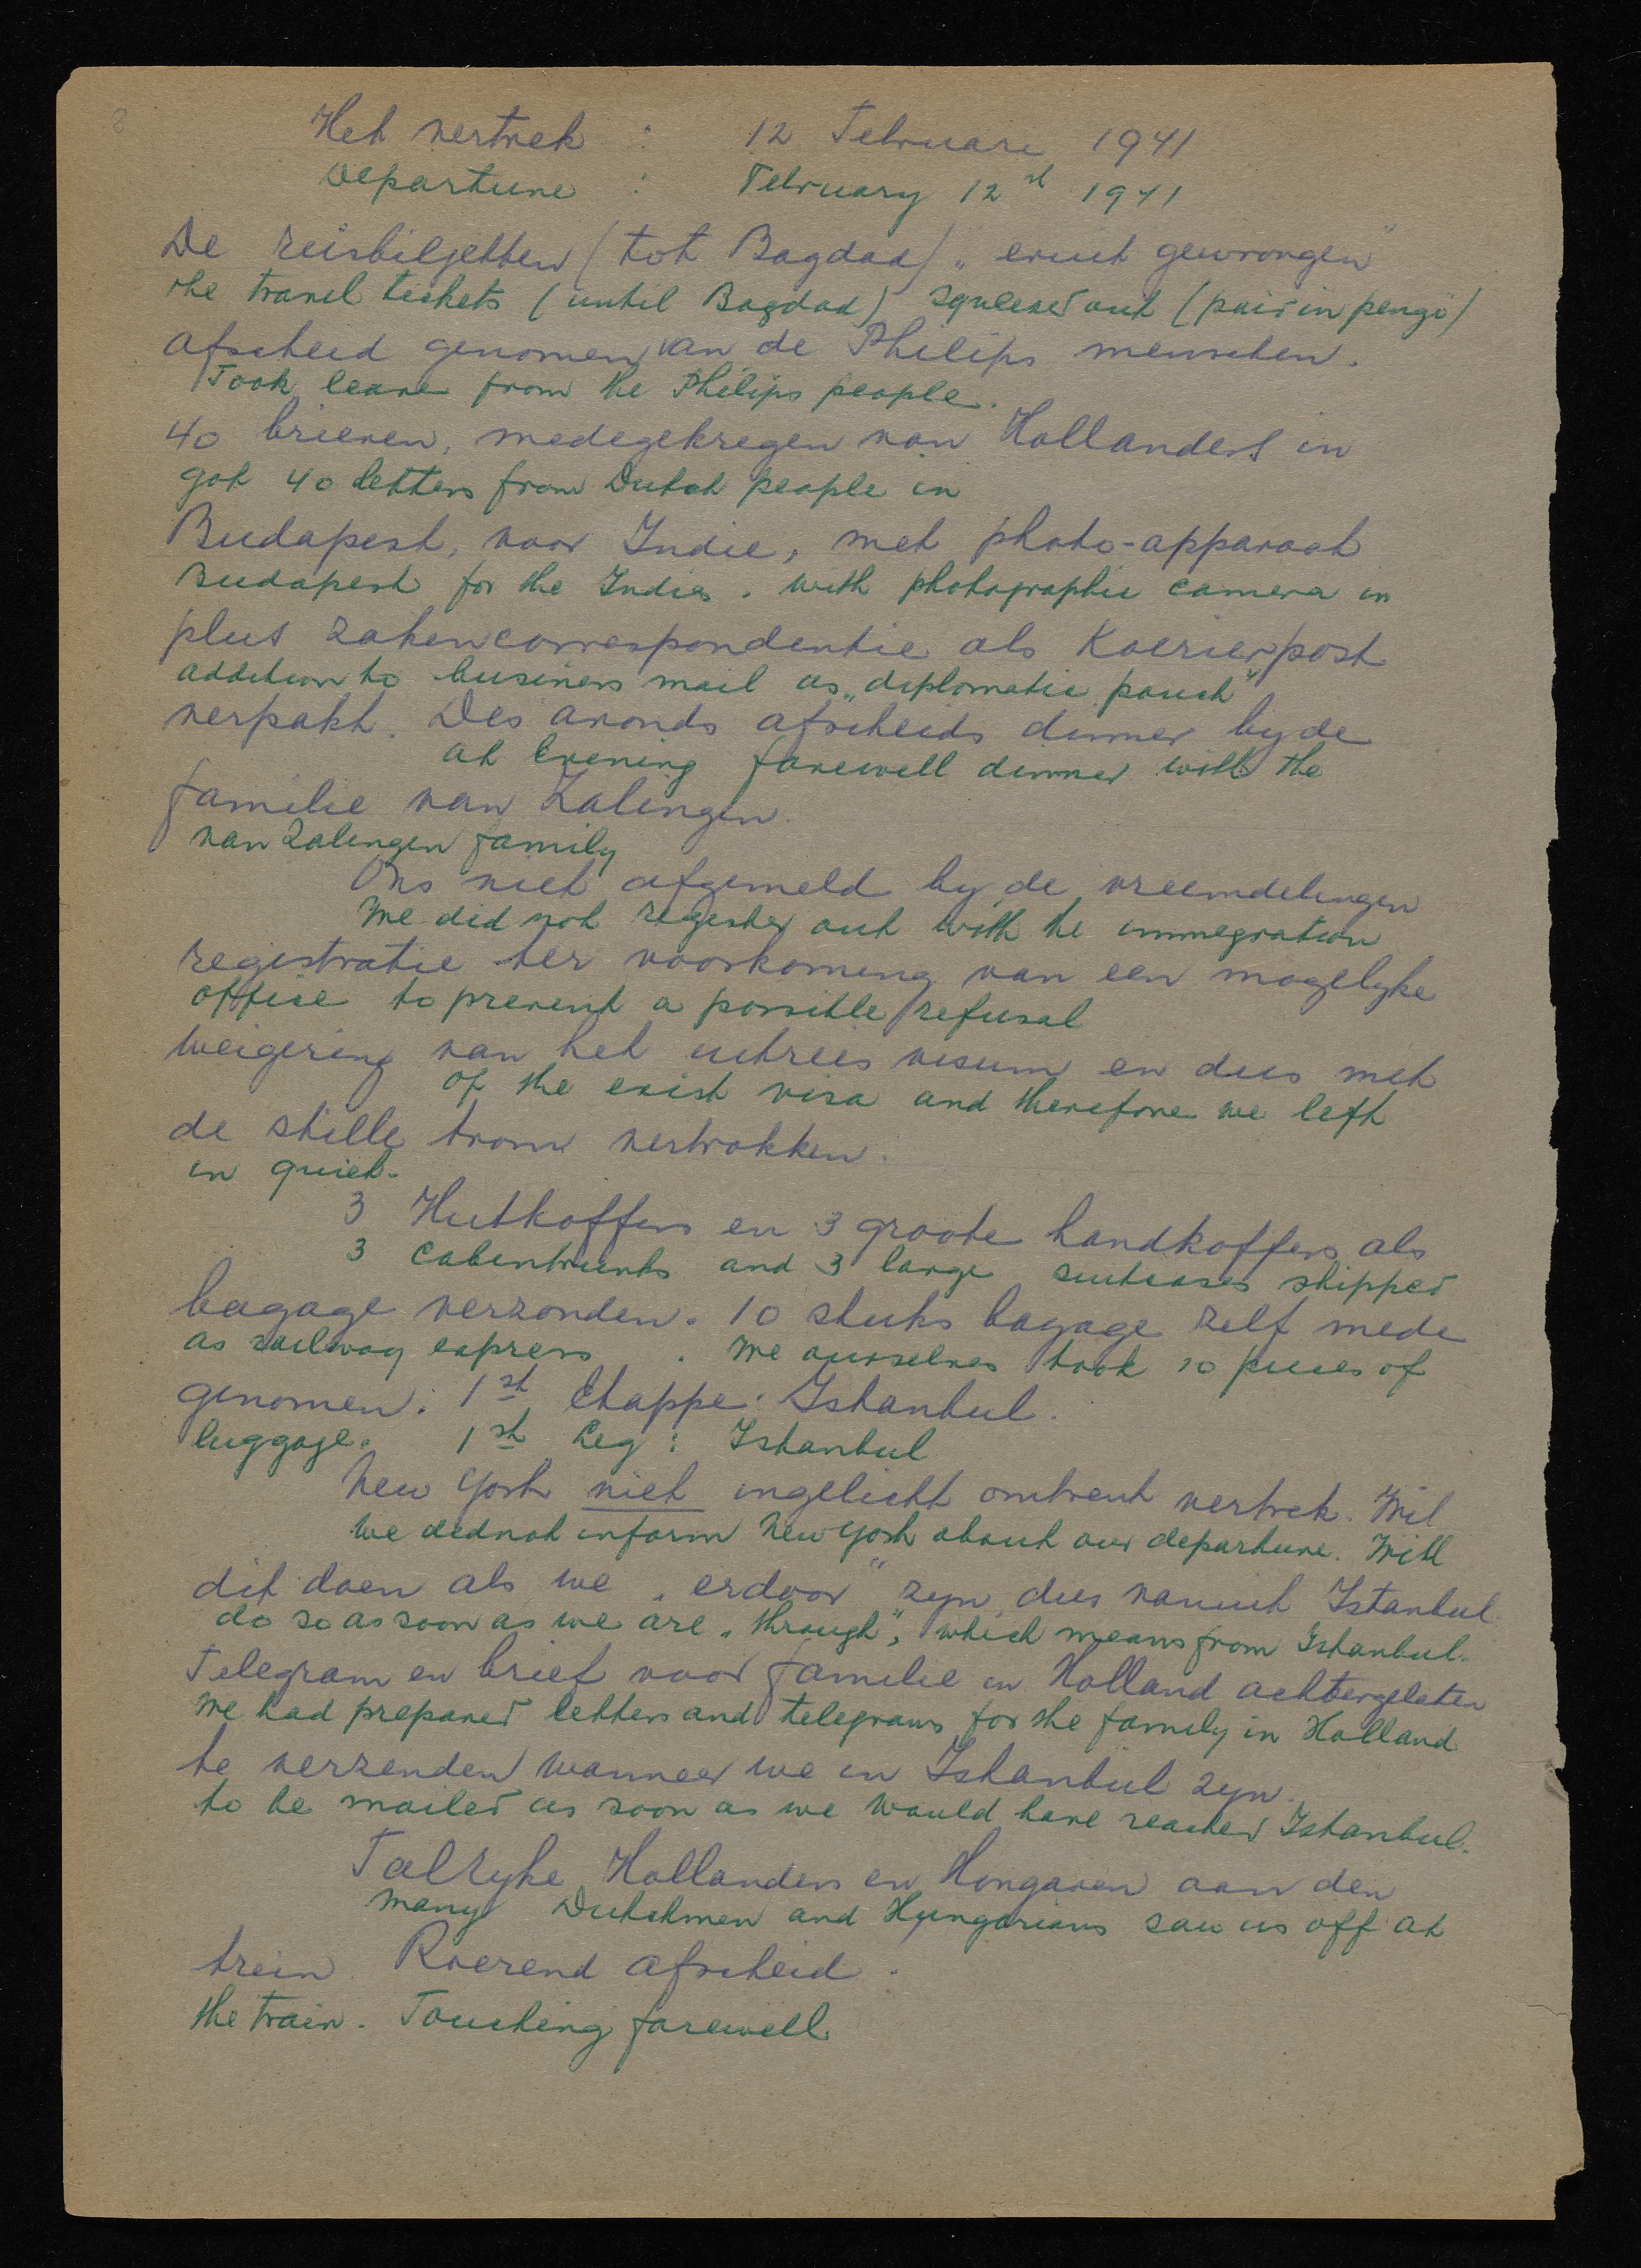 8
Het vertrek : 12 Februari 1941
Departure : February 12st 1941
De reisbiljetten (tot Bagdad) „eruit gewrongen"
The travel tickets (until Bagdad) squeezed out (paid in pengö)
Afscheid genomen van de Philips menschen.
Took leave from the Philips people.
40 brieven, medegekregen van Hollanders in
got 40 letters from Dutch people in
Budapest, voor Indie, met photo-apparaat
Budapest for the Indies. with photographic camera in
plus zakencorrespondentie als Koerierpost
addition to business mail as „diplomatic pouch"
verpakt. Des avonds afscheids dinner by de
at Evening farewell dinner with the
familie van Zalingen.
van Zalingen family
Ons niet afgemeld by de vreemdelingen
We did not register out with the immegration
registratie ter voorkoming van een mogelyke
office to prevent a possible refusal
weigering van het uitreis visum en dus met
of the exist visa and therefore we left
de stille trom vertrokken.
in quiet.
3 Hutkoffers en 3 groote handkoffers als
3 Cabintrunks and 3 large suitcases shipped
bagage verzonden. 10 stuks bagage zelf mede
as railway express . We ourselves took 10 pieces of
genomen. 1st Etappe: Istanbul.
luggage. 1st Leg: Istanbul
New York niet ingelicht omtrent vertrek. Wil
We did not inform New York about our departure. Will
dit doen als we „erdoor" zyn, dus vanuit Istanbul.
do so as soon as we are „through", which means from Istanbul.
Telegram en brief voor familie in Holland achtergelaten
We had prepared letters and telegrams for the family in Holland
te verzenden wanneer we in Istanbul zyn.
to be mailed as soon as we would have reached Istanbul.
Talryke Hollanders en Hongaren aan den
Many Dutchmen and Hungarians saw us off at
trein. Roerend afscheid.
the train. Touching farewell